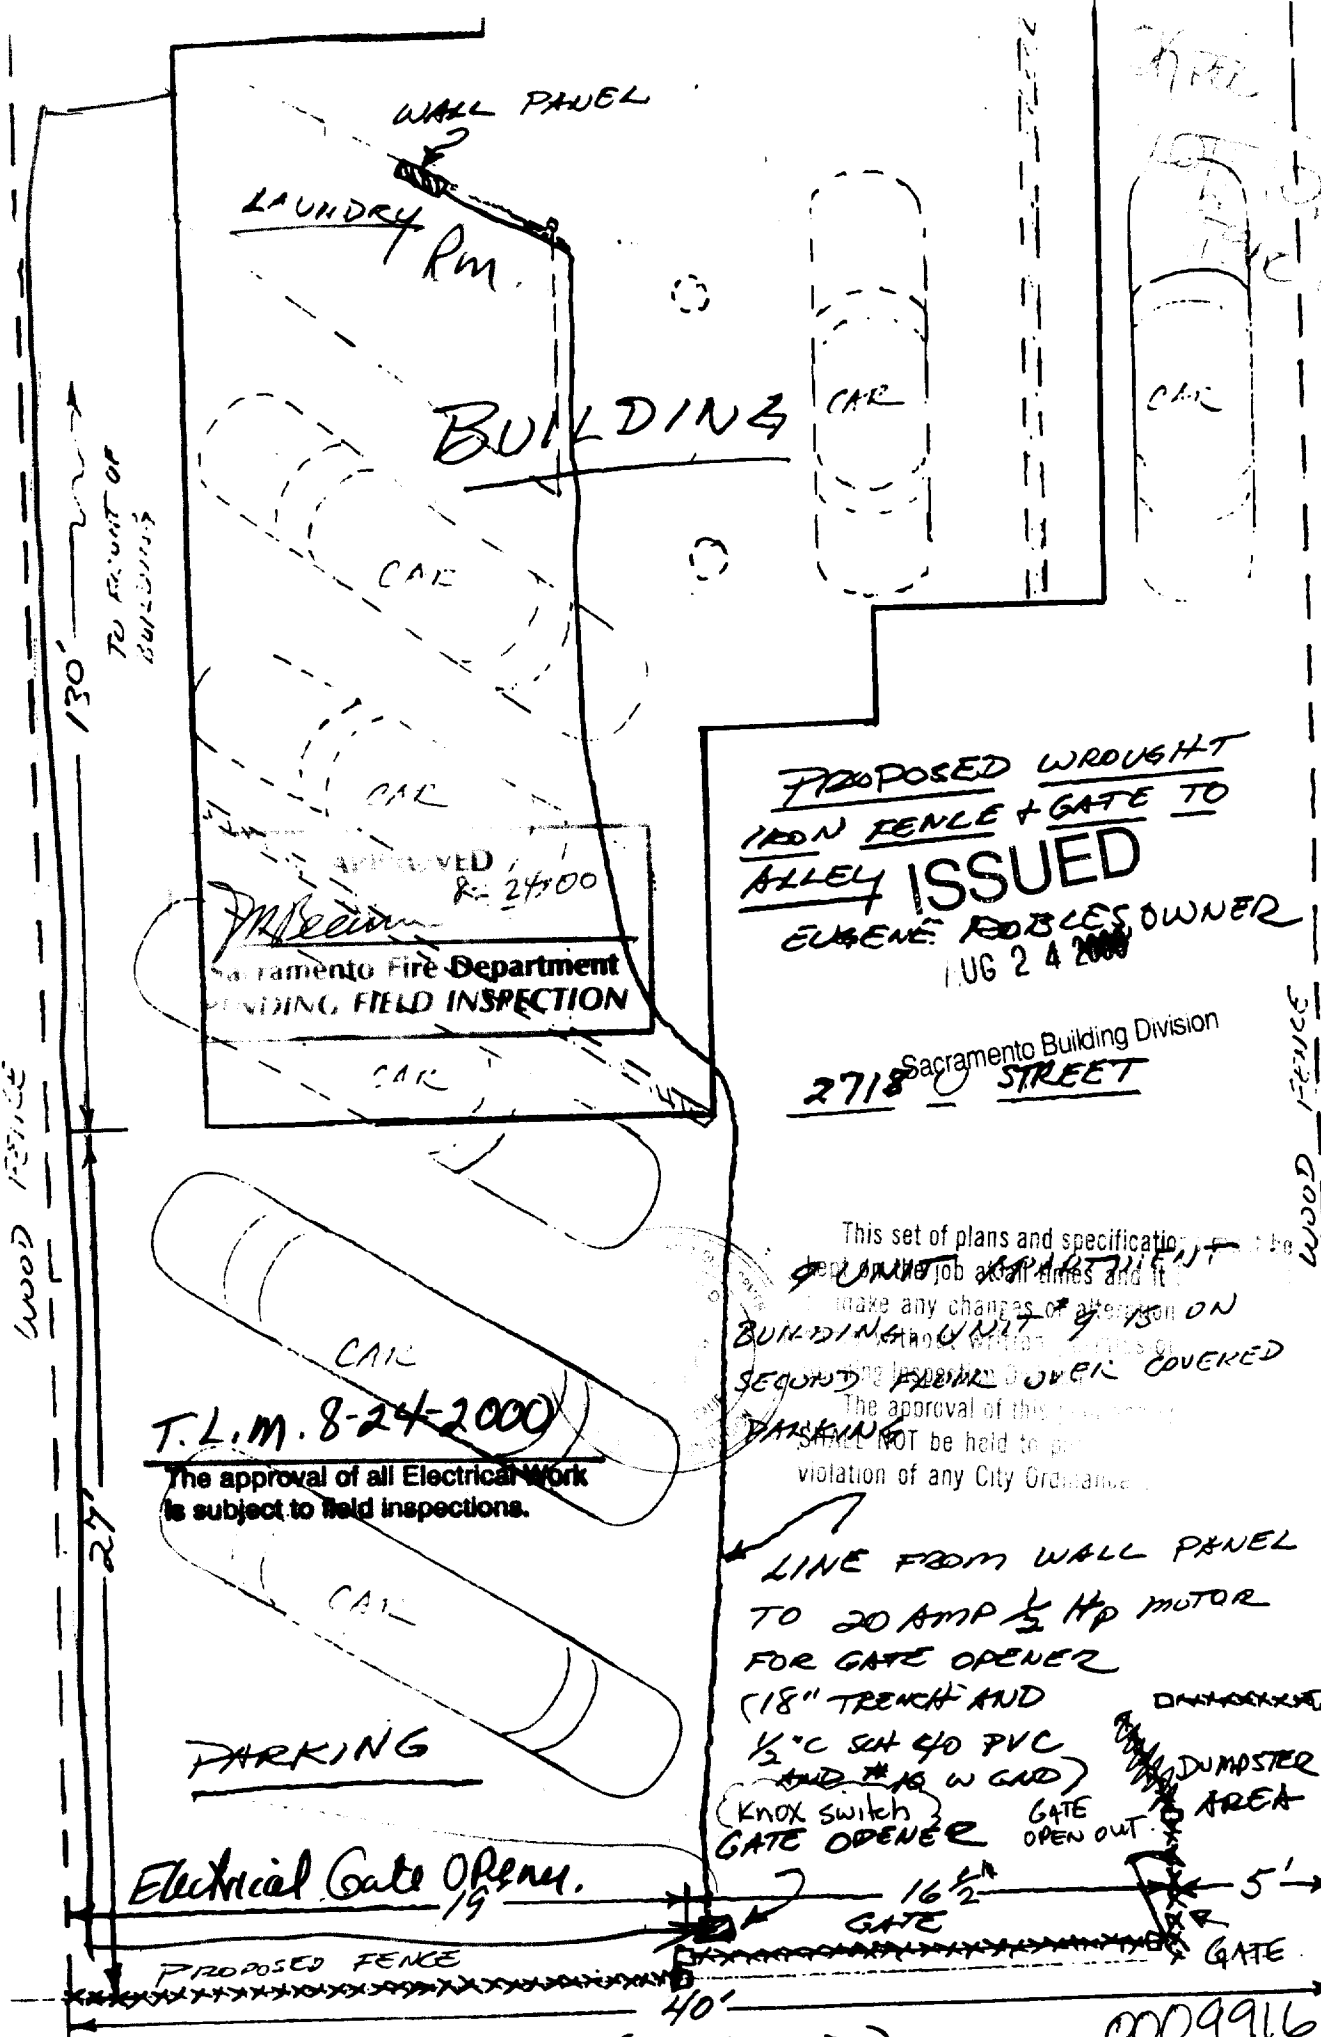 WALL PANEL
LAUNDRY
Rm.
BUILDING
CAR
CAR
CAR
CAR
CAR
130'
TO FRONT OF
BUILDING
APPROVED
8-24-00
Sacramento Fire Department
PENDING FIELD INSPECTION
PROPOSED WROUGHT
IRON FENCE + GATE TO
ALLEY
ISSUED
EUGENE ROBLES, OWNER
AUG 24 2000
Sacramento Building Division
2718 O STREET
WOOD FENCE
WOOD FENCE
This set of plans and specification
kept on the job at all times and it
make any changes or alteration
The approval of this
SHALL NOT be held to
violation of any City Ordinance
9 UNIT APARTMENT
BUILDING UNIT #9 IS ON
SECOND FLOOR OVER COVERED
PARKING
CAR
CAR
CAR
T.L.M. 8-24-2000
The approval of all Electrical Work
is subject to field inspections.
27'
LINE FROM WALL PANEL
TO 20 AMP 1/2 HP MOTOR
FOR GATE OPENER
(18" TRENCH AND
1/2 "C SCH 40 PVC
AND # W GND)
Knox switch
GATE OPENER
GATE
OPEN OUT
DUMPSTER
AREA
PARKING
Electrical Gate Opener.
19
16 1/2"
GATE
5'
GATE
PROPOSED FENCE
40'
0009916